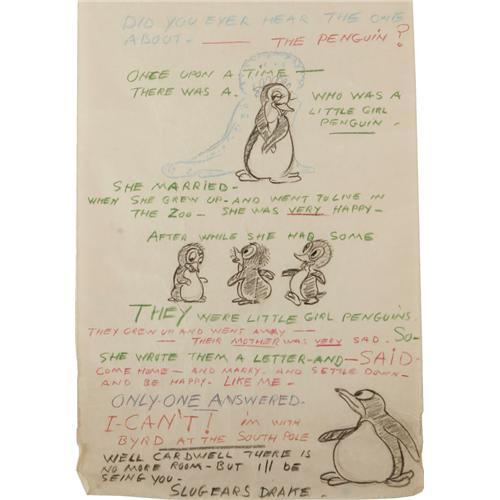 DID YOU EVER HEAR THE ONE
ABOUT- — THE PENGUIN?
ONCE UPON A TIME —
THERE WAS A. WHO WAS A
LITTLE GIRL
PENGUIN -
SHE MARRIED -
WHEN SHE GREW UP - AND WENT TO LIVE IN
THE ZOO - SHE WAS VERY HAPPY -
AFTER WHILE SHE HAD SOME
THEY WERE LITTLE GIRL PENGUINS.
THEY GREW UP AND WENT AWAY —
— THEIR MOTHER WAS VERY SAD. SO-
SHE WROTE THEM A LETTER - AND - SAID -
COME HOME - AND MARRY. AND SETTLE DOWN -
AND BE HAPPY. LIKE ME -
ONLY-ONE ANSWERED.
I-CAN'T! I'M WITH
BYRD AT THE SOUTH POLE
WELL CARDWELL THERE IS
NO MORE ROOM - BUT I'll BE
SEING YOU -
SLUGEARS DRAKE.